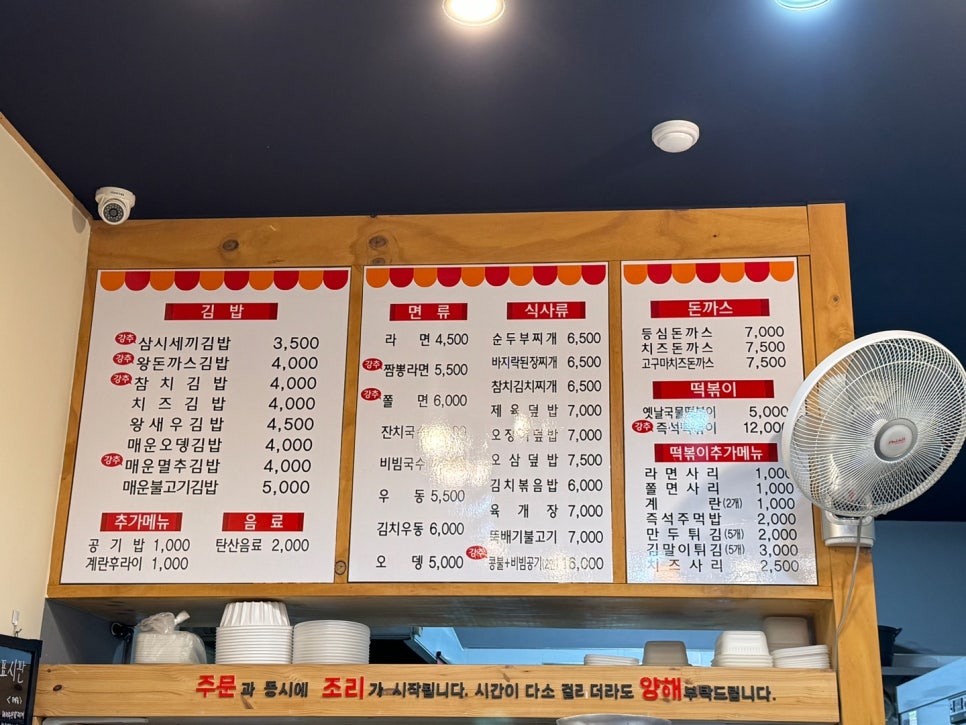 김밥
강추 삼시세끼김밥 3,500
강추 왕돈까스김밥 4,000
강추 참치김밥 4,000
치즈김밥 4,000
왕새우김밥 4,500
매운오뎅김밥 4,000
강추 매운멸추김밥 4,000
매운불고기김밥 5,000
추가메뉴
공기밥 1,000
계란후라이 1,000
음료
탄산음료 2,000
면류
라면 4,500
강추 짬뽕라면 5,500
강추 쫄면 6,000
잔치국
비빔국수
우동 5,500
김치우동 6,000
오뎅 5,000
식사류
순두부찌개 6,500
바지락된장찌개 6,500
참치김치찌개 6,500
제육덮밥 7,000
오징어덮밥 7,000
오삼덮밥 7,500
김치볶음밥 6,000
육개장 7,000
뚝배기불고기 7,000
강추 콩불+비빔공기(2인) 16,000
돈까스
등심돈까스 7,000
치즈돈까스 7,500
고구마치즈돈까스 7,500
떡볶이
옛날국물떡볶이 5,000
강추 즉석떡볶이 12,000
떡볶이추가메뉴
라면사리 1,000
쫄면사리 1,000
계란(2개) 1,000
즉석주먹밥 2,000
만두튀김(5개) 2,000
김말이튀김(5개) 3,000
치즈사리 2,500
주문과 동시에 조리가 시작됩니다. 시간이 다소 걸리더라도 양해부탁드립니다.